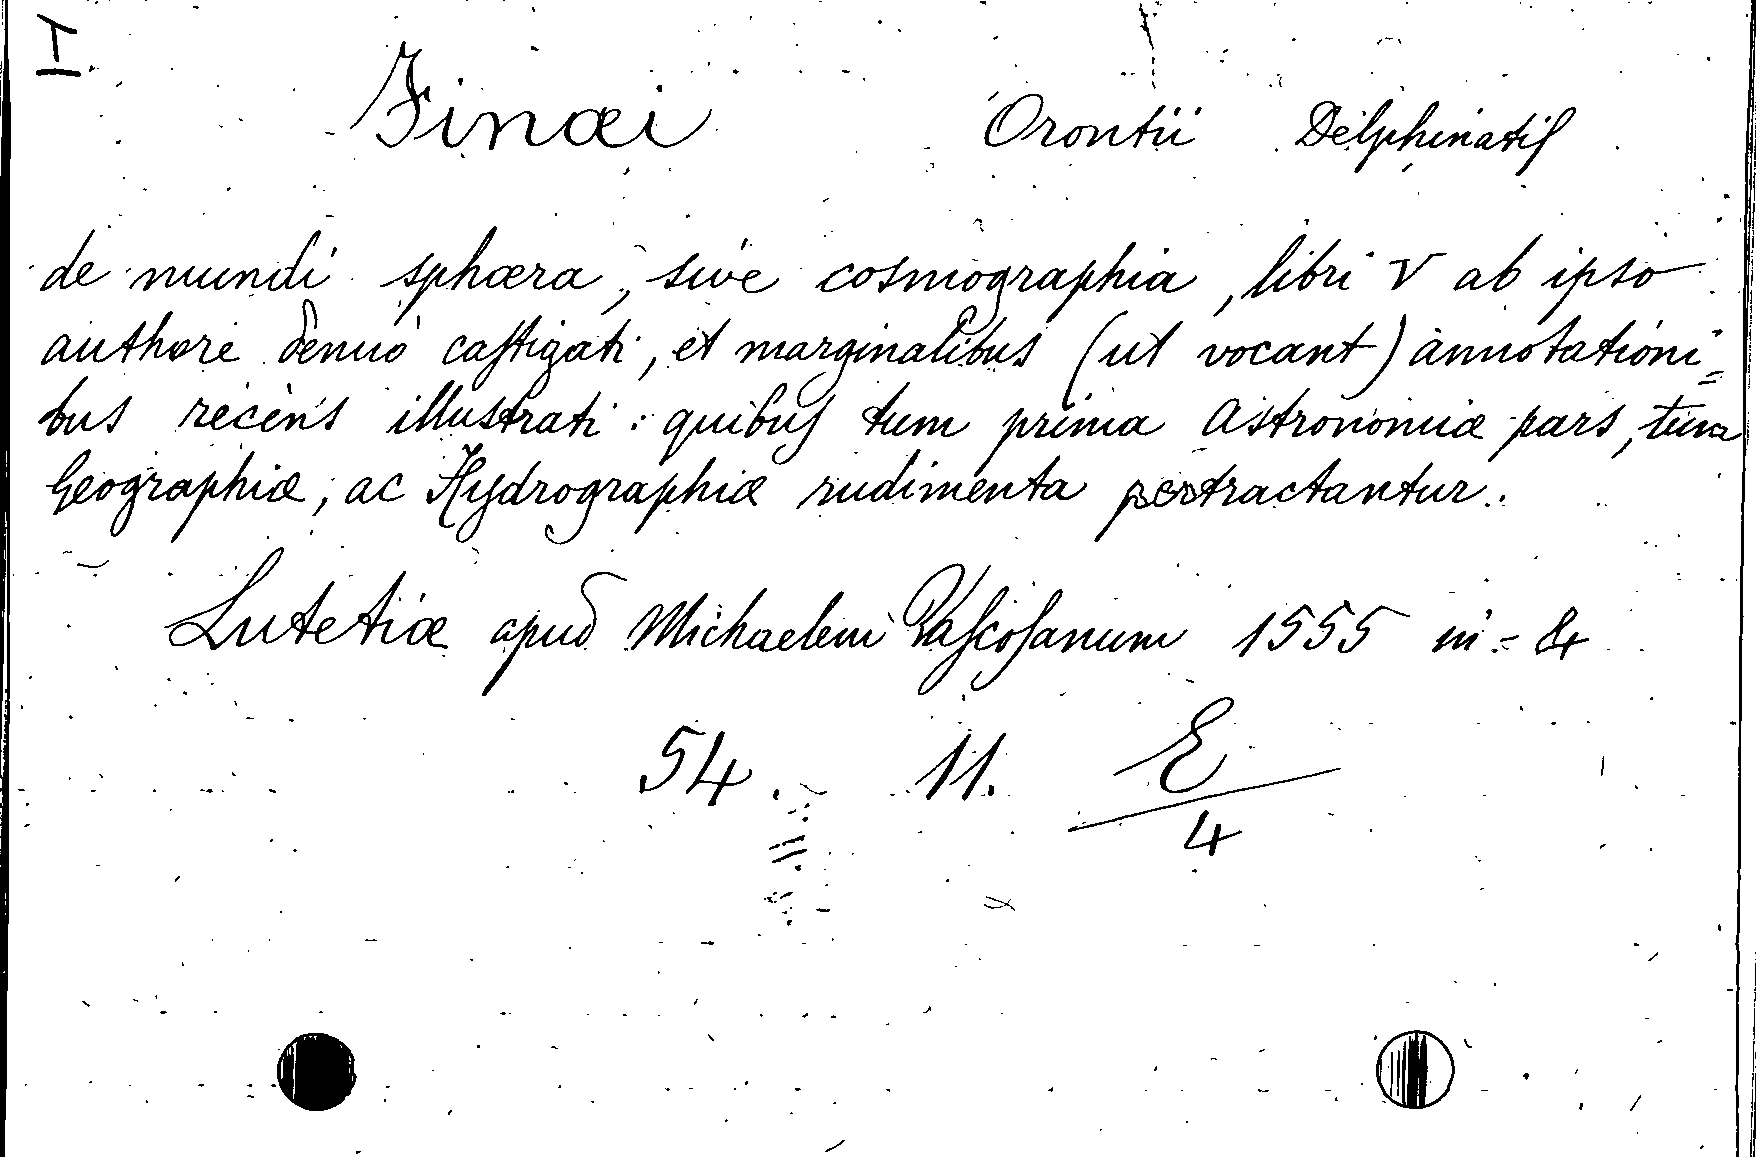 I
Finæi Orontii Delphinatis
de mundi sphæra, sive cosmographia, libri V ab ipso
authore denuò castigati, et marginalibus (ut vocant) annotationi=
bus recèns illustrati: quibus tum prima Astronomiæ pars, tum
Geographiæ, ac Hydrographiæ rudimenta pertractantur.
Lutetiæ apud Michaelem Vascosanum 1555 in-4
54. 11. E
4